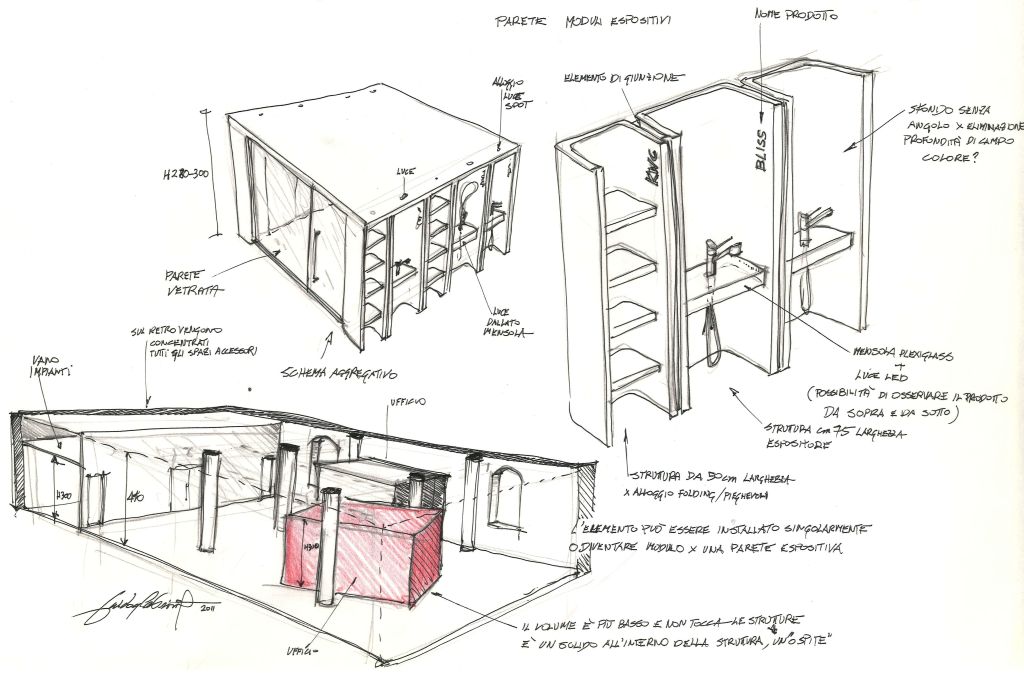 PARETE MODULI ESPOSITIVI
NOME PRODOTTO
ELEMENTO DI GIUNZIONE
ALLOGGIO
LUCE
SPOT
LUCE
H 280-300
PARETE
VETRATA
LUCE
DALLATO
MENSOLA
SCHEMA AGGREGATIVO
KING
BLISS
SFONDO SENZA
ANGOLO X ELIMINAZIONE
PROFONDITÀ DI CAMPO
COLORE?
MENSOLA PLEXIGLASS
+
LUCE LED
(POSSIBILITÀ DI OSSERVARE IL PRODOTTO
DA SOPRA E DA SOTTO)
STRUTTURA cm 75 LARGHEZZA
ESPOSITORE
STRUTTURA DA 50cm LARGHEZZA
X ALLOGGIO FOLDING/PIEGHEVOLI
L'ELEMENTO PUÒ ESSERE INSTALLATO SINGOLARMENTE
O DIVENTARE MODULO X UNA PARETE ESPOSITIVA
SUL RETRO VENGONO
CONCENTRATI
TUTTI GLI SPAZI ACCESSORI
VANO
IMPIANTI
UFFICIO
H300
H300
UFFICIO
2011
IL VOLUME È PIÙ BASSO E NON TOCCA LE STRUTTURE
È UN SOLIDO ALL'INTERNO DELLA STRUTTURA, UN "OSPITE"